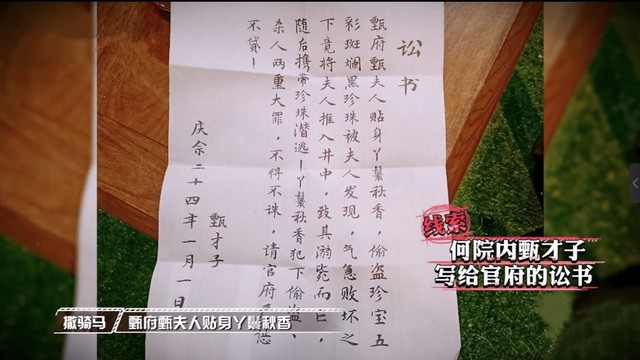 讼书
甄府甄夫人贴身丫鬟秋香，偷盗珍宝五
彩斑斓黑珍珠被夫人发现，气急败坏之
下竟将夫人推入井中，致其溺毙而亡，
随后携带珍珠潜逃！丫鬟秋香犯下偷盗、
杀人两重大罪，不得不诛，请官府惩
不贷！
甄才子
庆佘二十四年一月一日
线索
何院内甄才子
写给官府的讼书
撒骑马 / 甄府甄夫人贴身丫鬟秋香